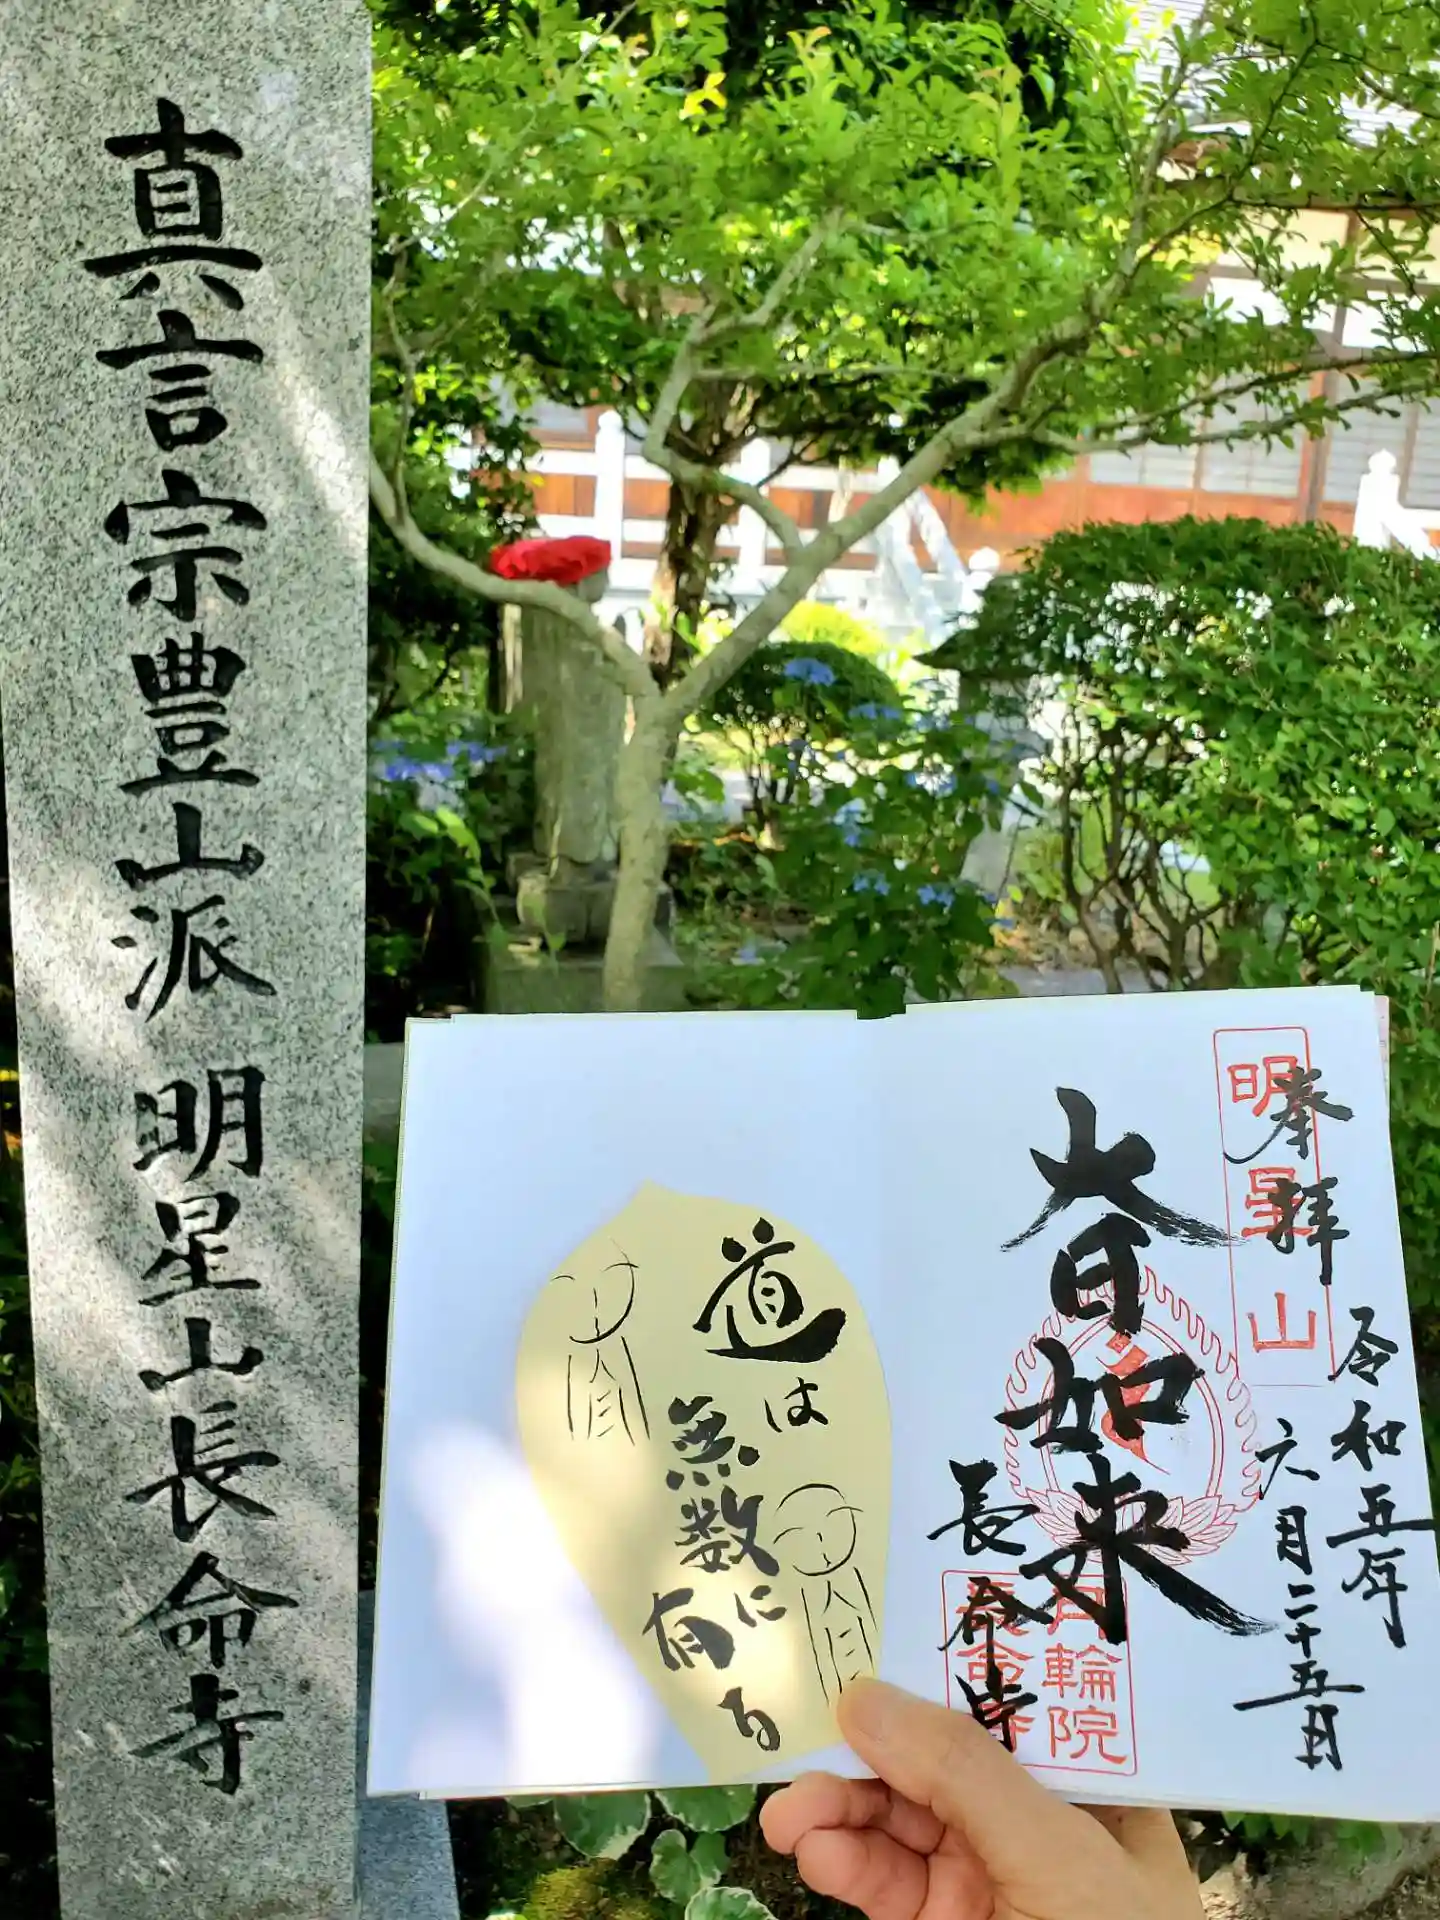 真言宗豊山派 明星山長命寺
奉拝
令和五年
六月二十五日
明星山
大日如来
長命寺
月輪院
長命寺
道は
無数に
有る